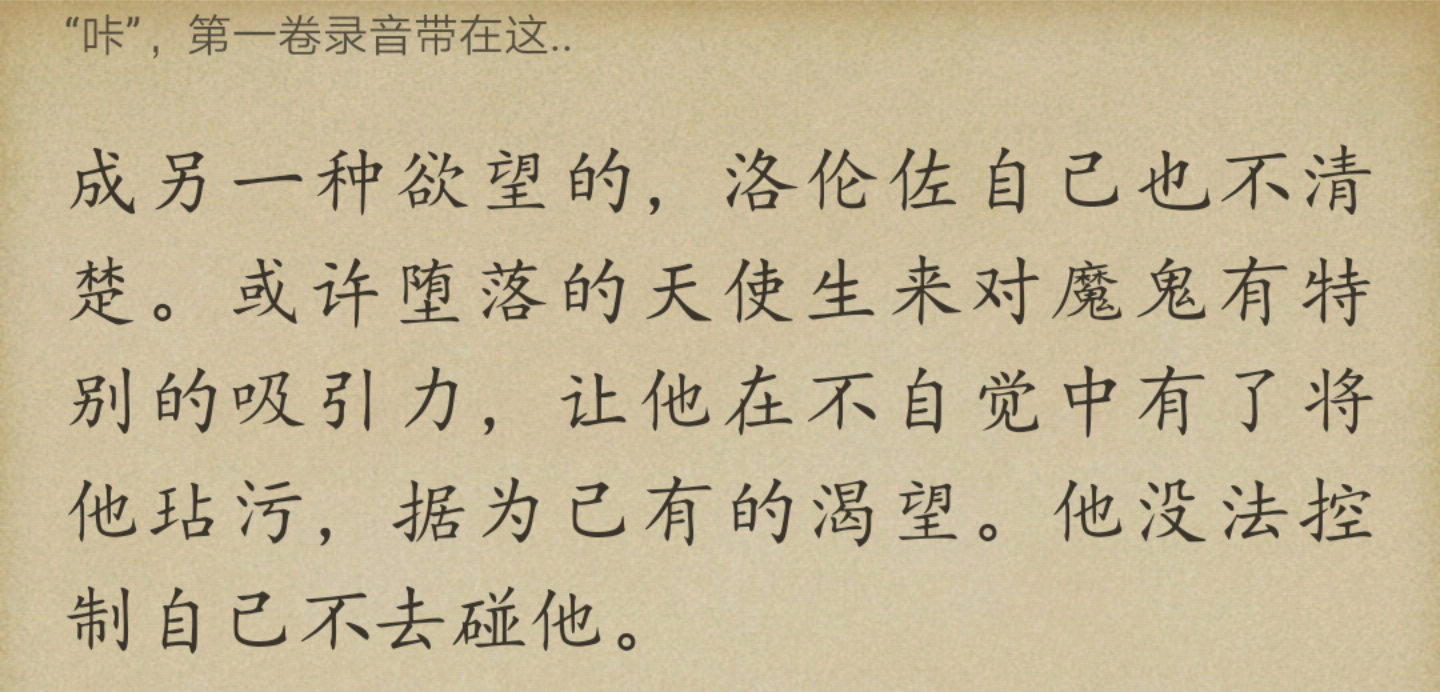 “咔”，第一卷录音带在这..
成另一种欲望的，洛伦佐自己也不清
楚。或许堕落的天使生来对魔鬼有特
别的吸引力，让他在不自觉中有了将
他玷污，据为己有的渴望。他没法控
制自己不去碰他。